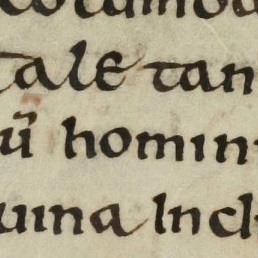 tale tan
ū homin
uina incl